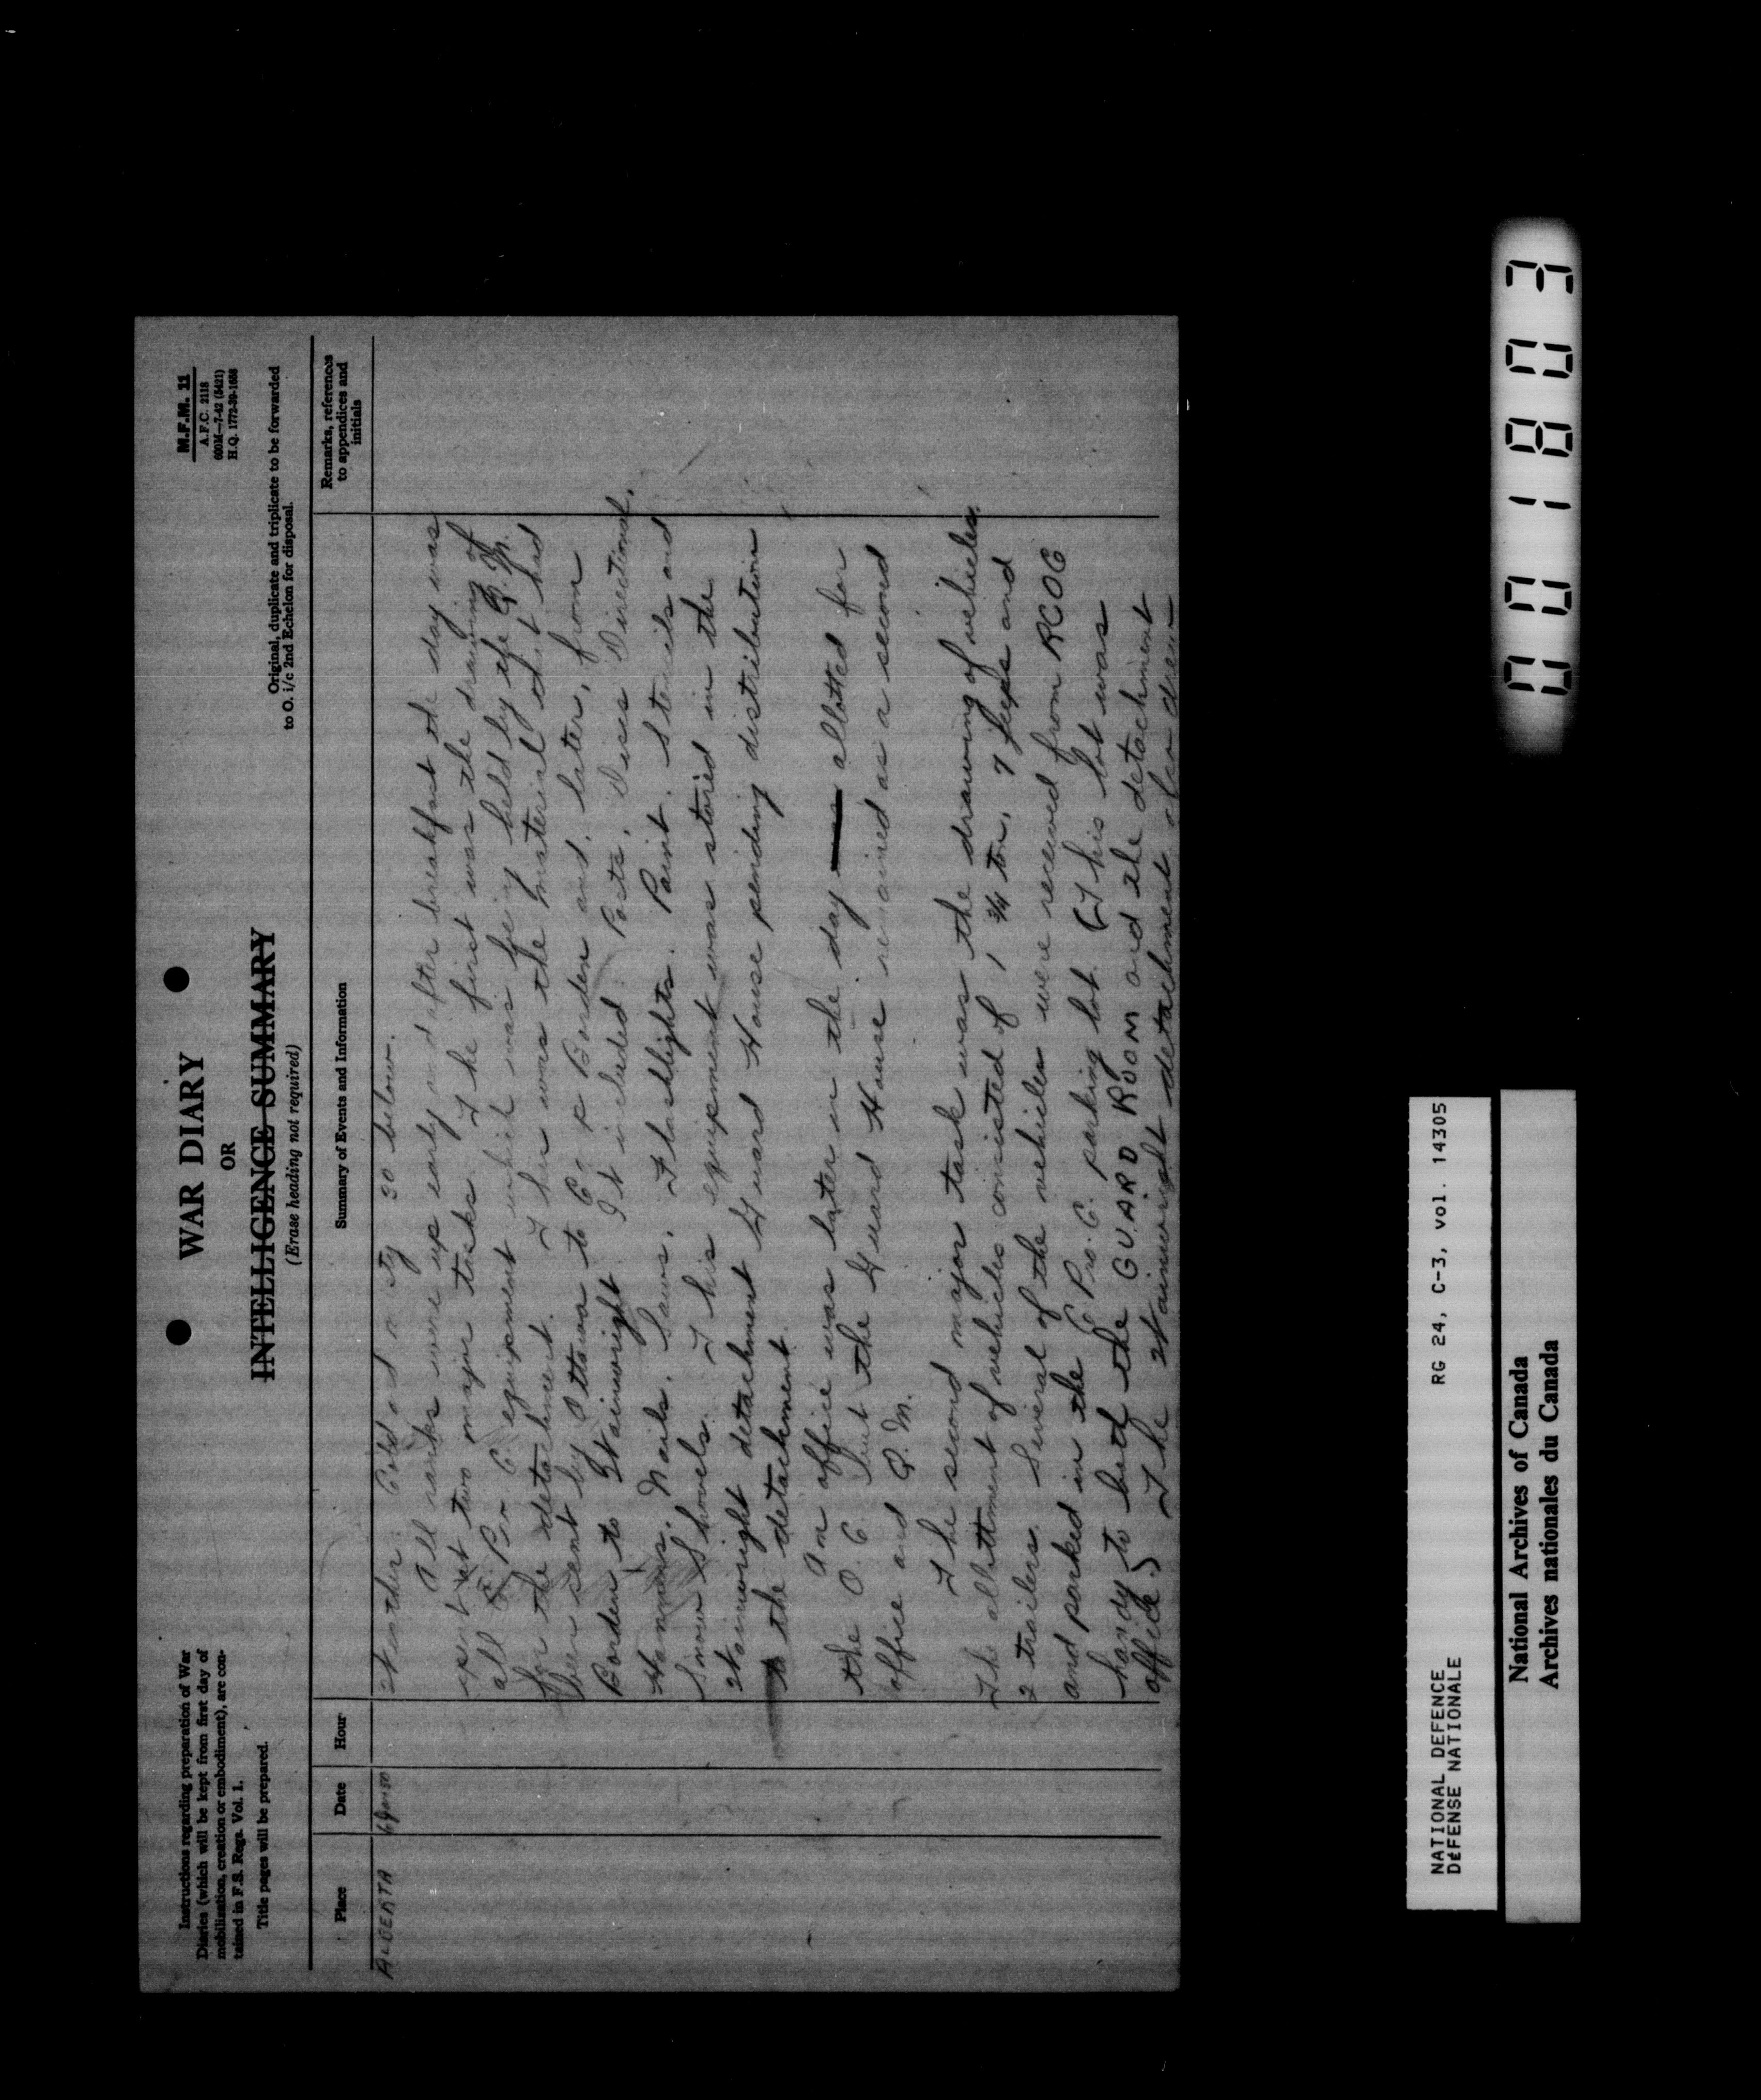 Instructions regarding preparation of War
Diaries (which will be kept from first day of
mobilization, creation or embodiment), are con-
tained in F.S. Regs. Vol. 1.
Title pages will be prepared.
WAR DIARY
OR
INTELLIGENCE SUMMARY
(Erase heading not required)
M.F.M. 11
A.F.C. 2118
600M—7-42 (5421)
H.Q. 1772-39-1658
Original, duplicate and triplicate to be forwarded
to O. i/c 2nd Echelon for disposal.
Place
Date
Hour
Summary of Events and Information
Remarks, references
to appendices and
initials
ALBERTA
6 Jan 50
Weather: Cold and 30 below.
All ranks were up early and after breakfast the day was
spent at two major tasks. The first was the drawing of
all Pro. C. equipment which was being held by the Q.M.
for the detachment. Then was the material that had
been sent by Ottawa to Borden and, later, from
Borden to Wainwright. It included: Posts, Discs Directional,
Hammers, Nails, Saws, Flashlights, Paint, Stencils and
Snow Shovels. This equipment was stored in the
Wainwright detachment Guard House pending distribution
to the detachment.
An office was later in the day allotted for
the O C. but the Guard House remained as a second
office and Q.M.
The second major task was the drawing of vehicles.
The allottment of vehicles consisted of 1 3/4 ton, 7 jeeps and
2 trailers. Several of the vehicles were received from RCOC
and parked in the C Pro. C. parking lot. (This lot was
handy to both the GUARD ROOM and the detachment
office.) The Wainwright detachment also drew
NATIONAL DEFENCE
DÉFENSE NATIONALE
RG 24, C-3, vol. 14305
National Archives of Canada
Archives nationales du Canada
001803